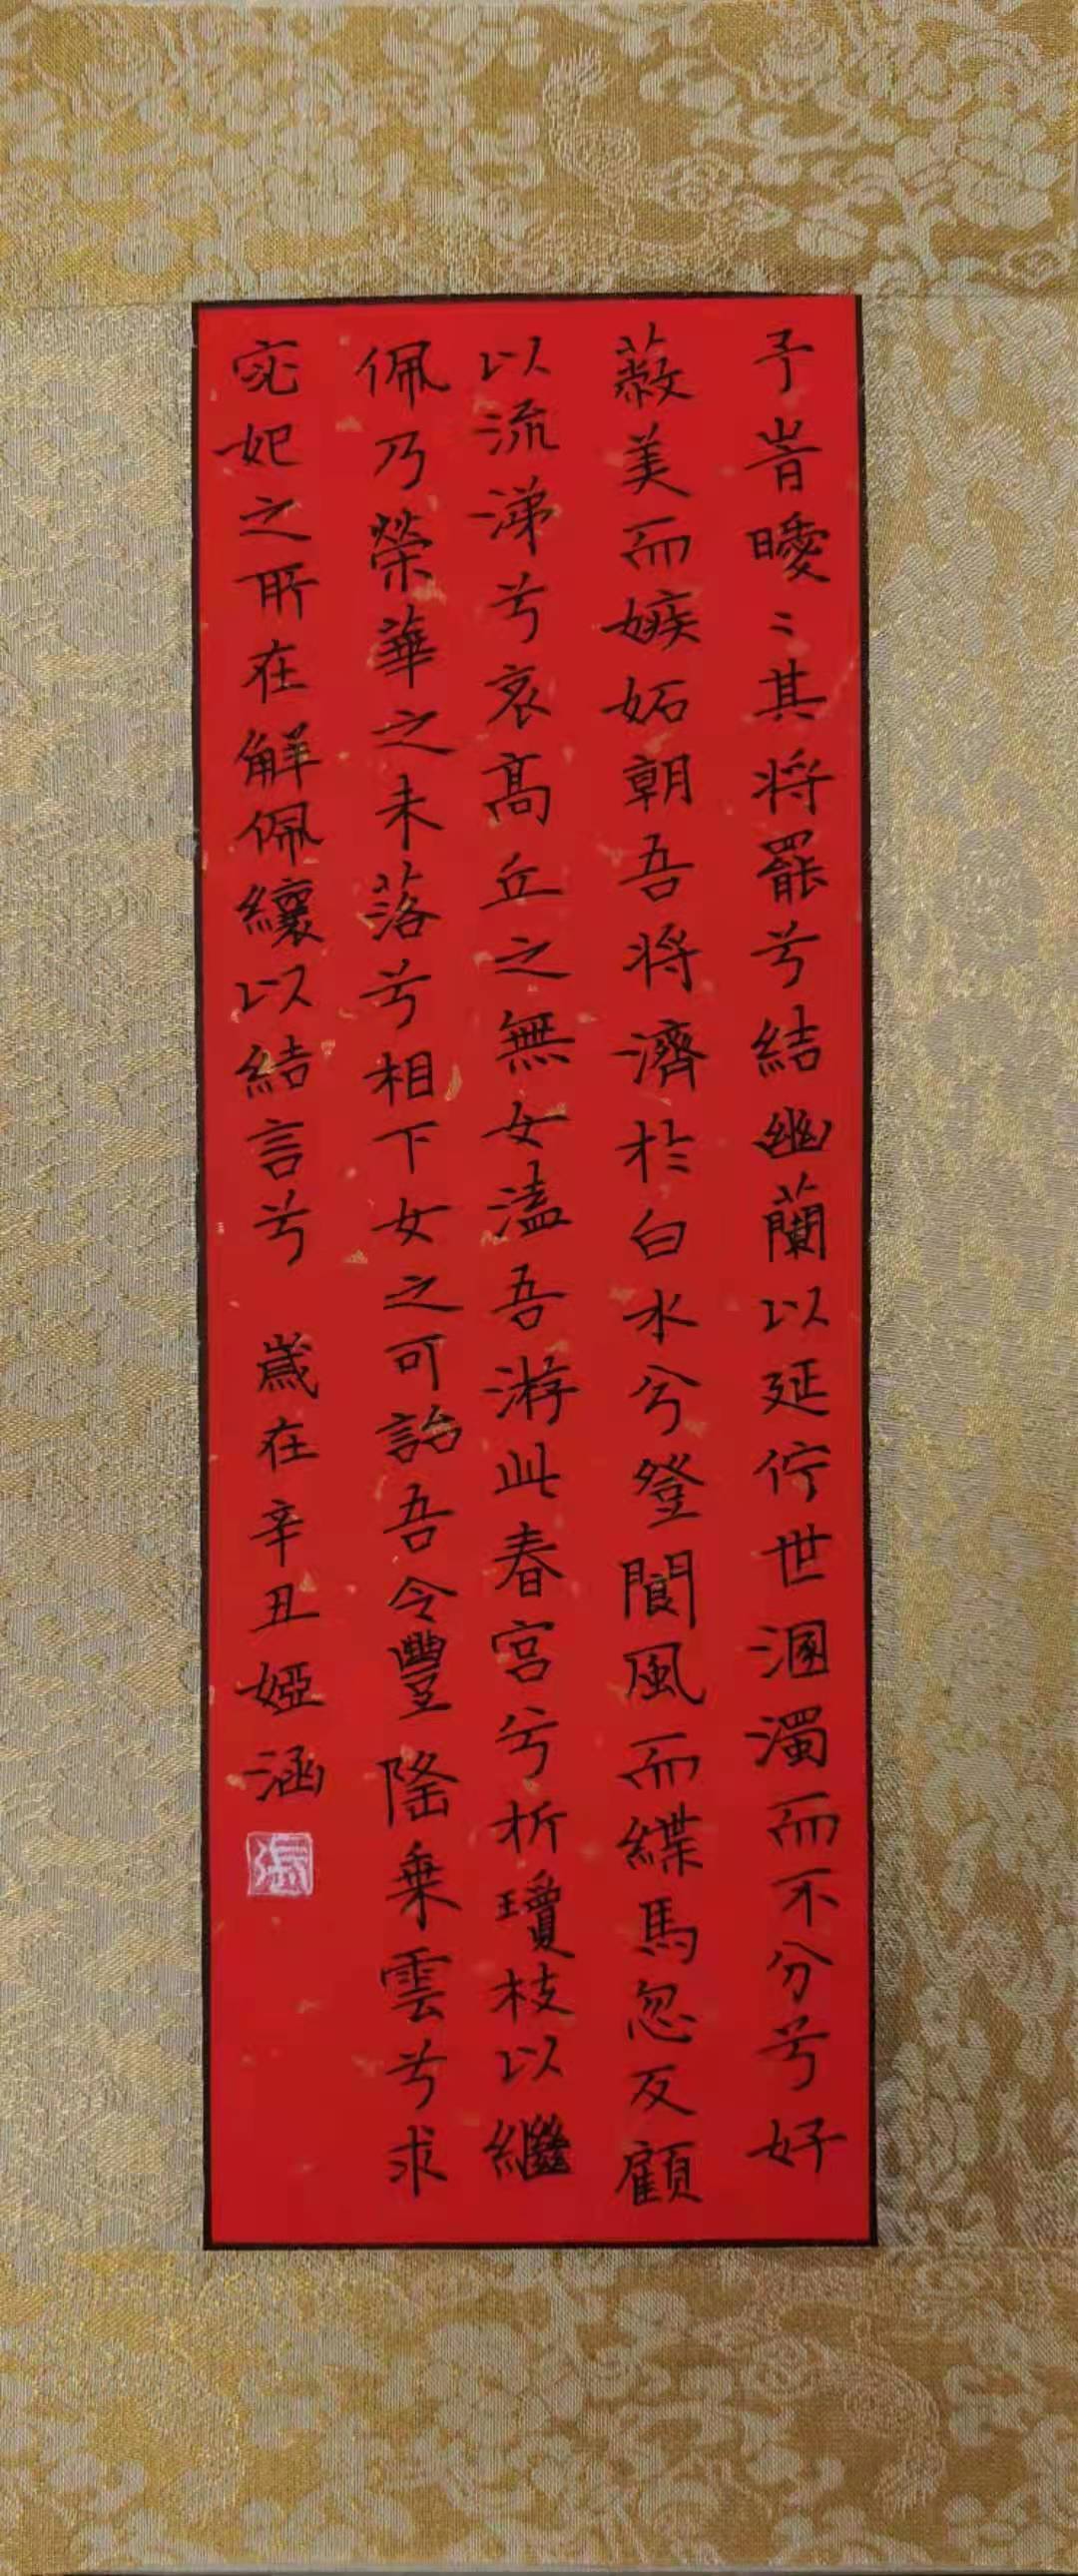 予旹曖〻其将罷兮結幽蘭以延佇世溷濁而不分兮好
蔽美而嫉妬朝吾将濟於白水兮登閬風而緤馬忽反顧
以流涕兮哀髙丘之無女溘吾游此春宮兮折瓊枝以繼
佩乃榮華之未落兮相下女之可詒吾令豐隆乗雲兮求
宓妃之所在解佩纕以結言兮 嵗在辛丑婭涵
張